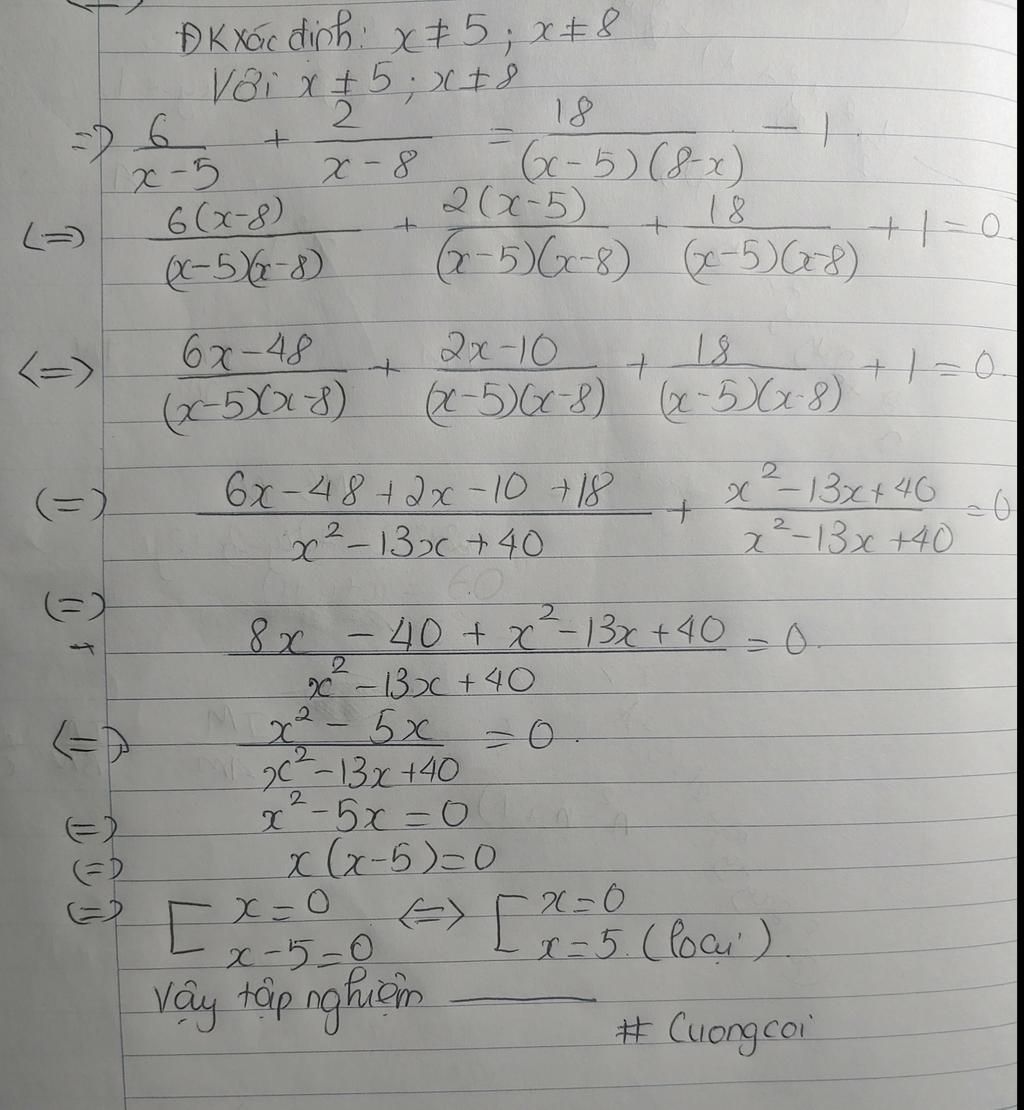 ĐK xác định: x ≠ 5 ; x ≠ 8
Với x ≠ 5 ; x ≠ 8
=> 6/(x-5) + 2/(x-8) = 18/((x-5)(8-x)) - 1
<=> 6(x-8)/((x-5)(x-8)) + 2(x-5)/((x-5)(x-8)) + 18/((x-5)(x-8)) + 1 = 0
<=> (6x-48)/((x-5)(x-8)) + (2x-10)/((x-5)(x-8)) + 18/((x-5)(x-8)) + 1 = 0
(=) (6x-48+2x-10+18)/(x²-13x+40) + (x²-13x+40)/(x²-13x+40) = 0
(=) (8x - 40 + x²-13x+40)/(x²-13x+40) = 0
<=> (x² - 5x)/(x²-13x+40) = 0
(=) x²-5x = 0
(=) x(x-5)=0
(=) [ x=0 <=> [ x=0
x-5=0 x=5 (loại)
Vậy tập nghiệm
# Cuongcoi